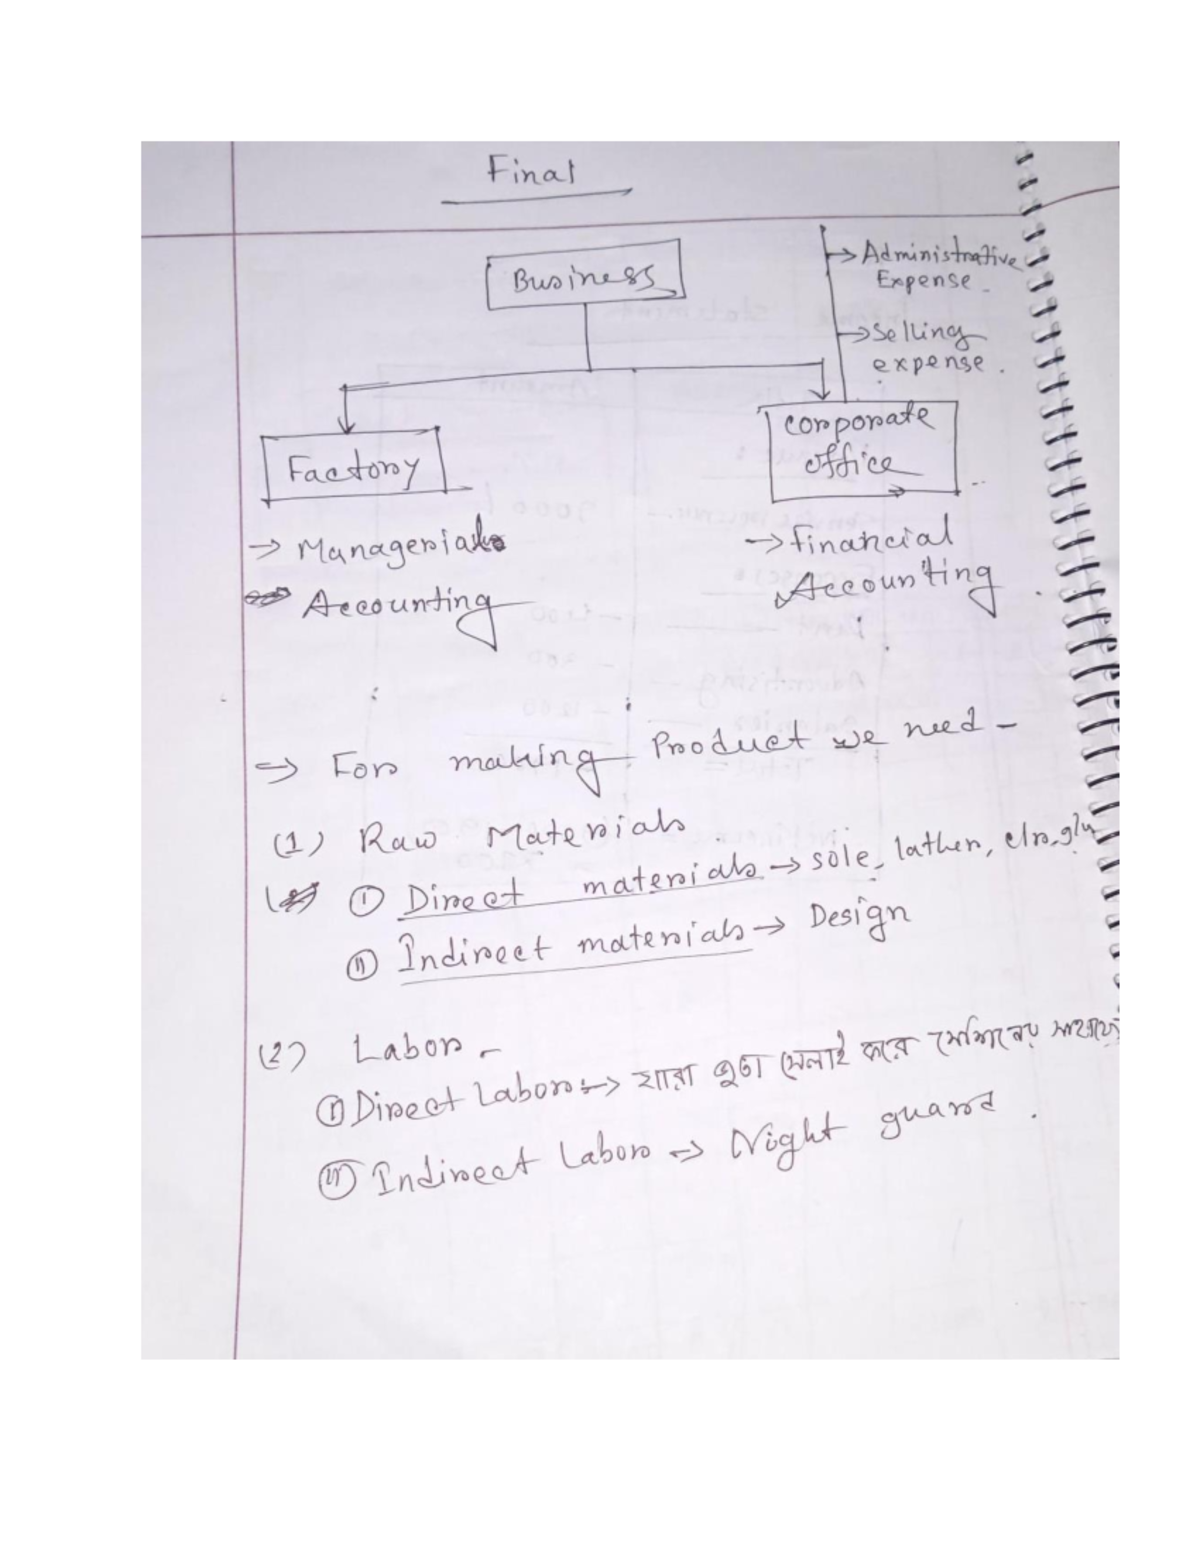 Final
Business
→ Administrative
Expense
→ Selling
expense.
Factory
Corporate
office
→ Managerial
Accounting
→ Financial
Accounting
→ For making Product we need –
(1) Raw Materials
(i) Direct materials → sole, lather,
(ii) Indirect materials → Design
(2) Labor –
(i) Direct Labor → যারা জুতা সেলাই করে মেশিনের সাহায্যে
(ii) Indirect Labor → Night guard.